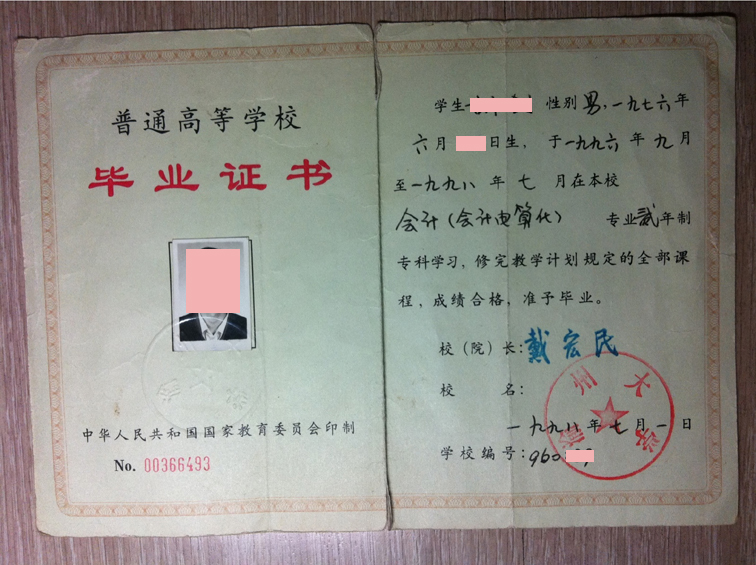 普通高等学校
毕业证书
中华人民共和国国家教育委员会印制
No. 00366493
学生 性别男,一九七六年
六月 日生，于一九九六年九月
至一九九八年七月在本校
会计(会计电算化) 专业贰年制
专科学习，修完教学计划规定的全部课
程，成绩合格，准予毕业。
校(院)长:戴宏民
校 名:
州大
一九九八年七月一日
学校编号:960